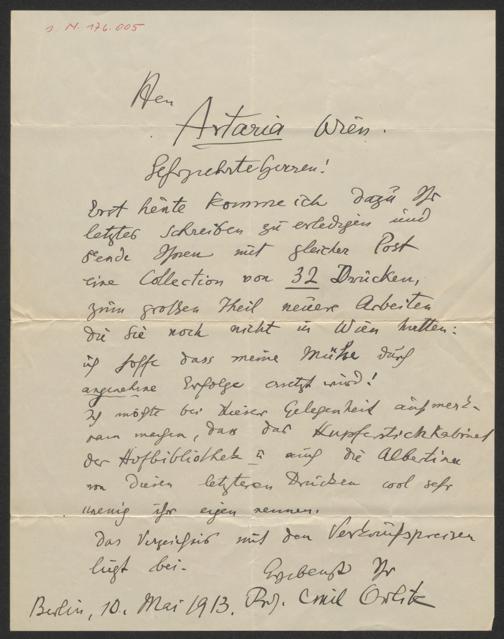 J. N. 176.005
An
Artaria Wien.
Sehr geehrte Herren!
Erst heute komme ich dazu Ihr
letztes Schreiben zu erledigen und
sende Ihnen mit gleicher Post
eine Collection von 32 Drucken,
zum großen Theil neuere Arbeiten
die Sie noch nicht in Wien hatten:
ich hoffe dass meine Mühe durch
angenehme Erfolge ersetzt wird!
Ich möchte bei dieser Gelegenheit aufmerk-
sam machen, dass das Kupferstichkabinet
der Hofbibliothek u auch die Albertina
von diesen letzteren Drucken wol sehr
wenig ihr eigen nennen.
Das Verzeichnis mit den Verkaufspreisen
liegt bei.
Ergebenst Ihr
Berlin, 10. Mai 1913. Prof. Emil Orlik